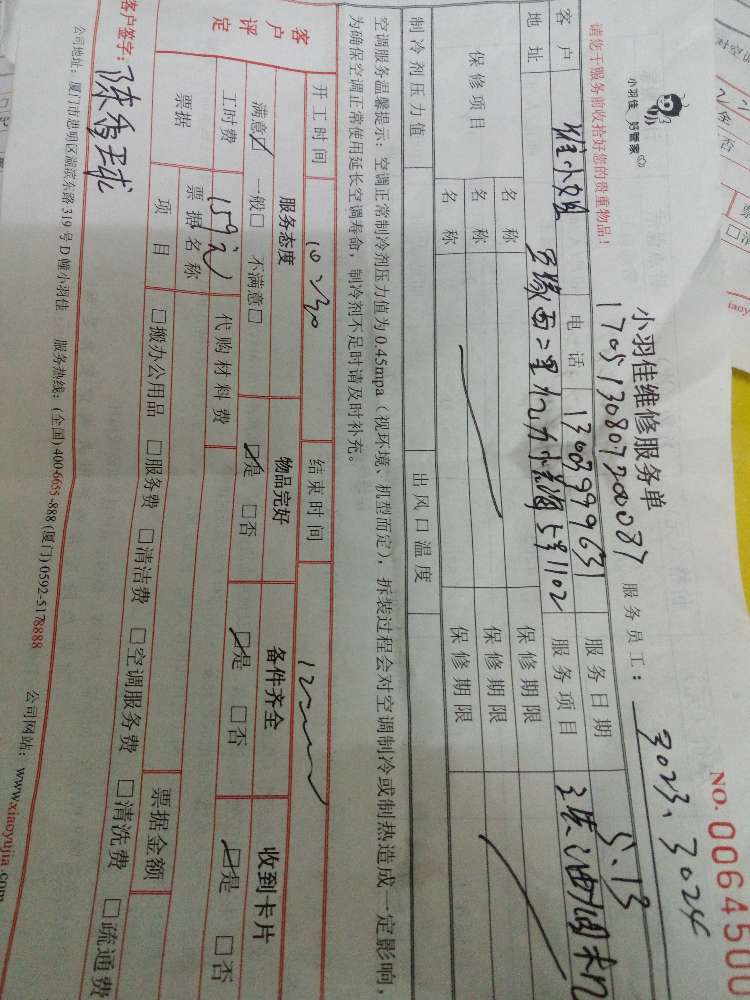 小羽佳 好管家
小羽佳维修服务单
NO.0064500
1705130807200087
服务员工：3023、3024
请您于服务前收拾好您的贵重物品！
客户 崔小姐 电话 13003999631 服务日期 5.13
地址 5号1102 服务项目 清洗油烟机
保修项目 名称 保修期限
名称 保修期限
名称 保修期限
制冷剂压力值 出风口温度
空调服务温馨提示：空调正常制冷剂压力值为0.45mpa（视环境、机型而定），拆装过程会对空调制冷或制热造成一定影响，
为确保空调正常使用延长空调寿命，制冷剂不足时请及时补充。
开工时间 10:30 结束时间 12
客户评定 服务态度 物品完好 备件齐全 收到卡片
满意☑ 一般□ 不满意□ ☑是 □否 ☑是 □否 ☑是 □否
工时费 159元 代购材料费
票据 票据名称 票据金额
项目 □搬办公用品 □服务费 □清洁费 □空调服务费 □清洗费 □疏通费
客户签字：陈
公司地址：厦门市思明区湖滨东路319号D幢小羽佳 服务热线：(全国)400-6655-888 (厦门)0592-5178888 公司网站：www.xiaoyujia.com